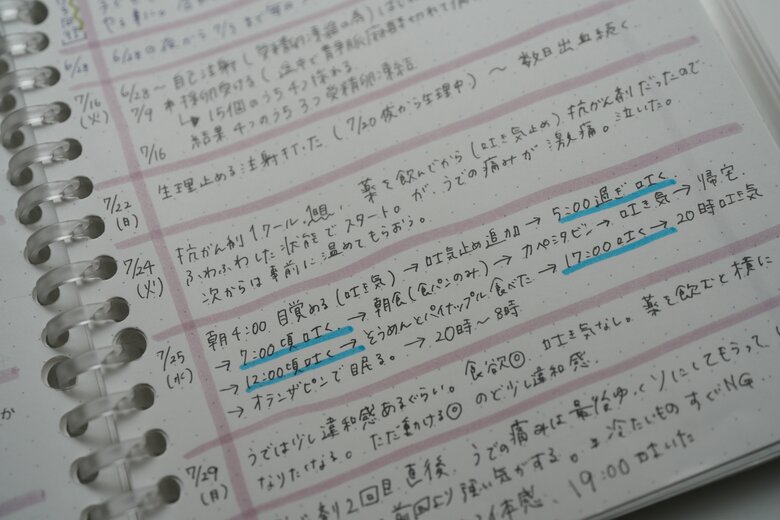 6/28
6/28の夜から7/3まで毎
7/16
(火)
6/28〜 自己注射(受精卵凍結の為)はじ
7/9 採卵受ける(途中で静脈麻酔きれて
↳ 15個のうち4つ採れる
結果4つのうち3つ受精卵凍結
7/16 生理止める注射打った(7/20夜から生理中)〜 数日出血続く
7/22
(月)
抗がん剤1クール1回目。薬を飲んでから(吐き気止め)抗がん剤だったので、
ふわふわした状態でスタート。が、うでの痛みが激痛。泣いた。
次からは事前に温めてもらおう。
7/24
(火)
朝4:00 目覚める(吐き気) → 吐気止め追加 → 5:00過ぎ吐く
→ 7:00頃吐く → 朝食(食パンのみ) → カペシタビン → 吐き気 → 帰宅
→ 12:00頃吐く → そうめんとパイナップル食べた → 17:00吐く → 20時吐き気
→ オランザピンで眠る。 → 20時〜8時
7/25
(水)
うでは少し違和感あるぐらい。食欲◎ 吐き気なし。薬を飲むと横に
なりたくなる。ただ動ける◎ のど少し違和感。
7/29
(月)
剤2回目 直後、うでの痛みは最後ゆっくりにしてもらって、
前回より強い気がする。冷たいものすぐNG
体感、19:00 吐いた